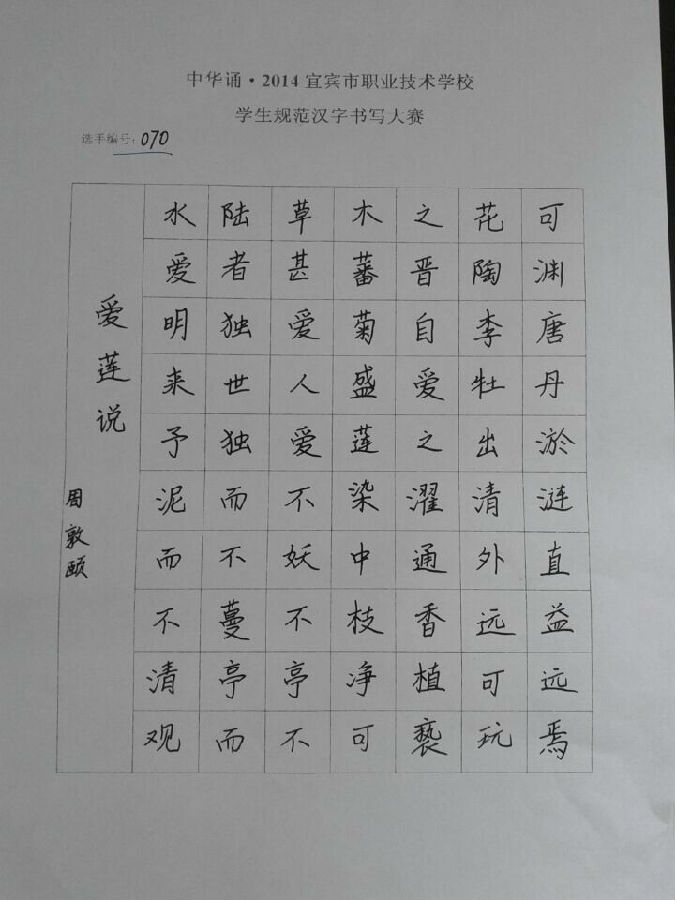 中华诵·2014宜宾市职业技术学校
学生规范汉字书写大赛
选手编号：070
爱莲说
周敦颐
水陆草木之花可
爱者甚蕃晋陶渊
明独爱菊自李唐
来世人盛爱牡丹
予独爱莲之出淤
泥而不染濯清涟
而不妖中通外直
不蔓不枝香远益
清亭亭净植可远
观而不可亵玩焉